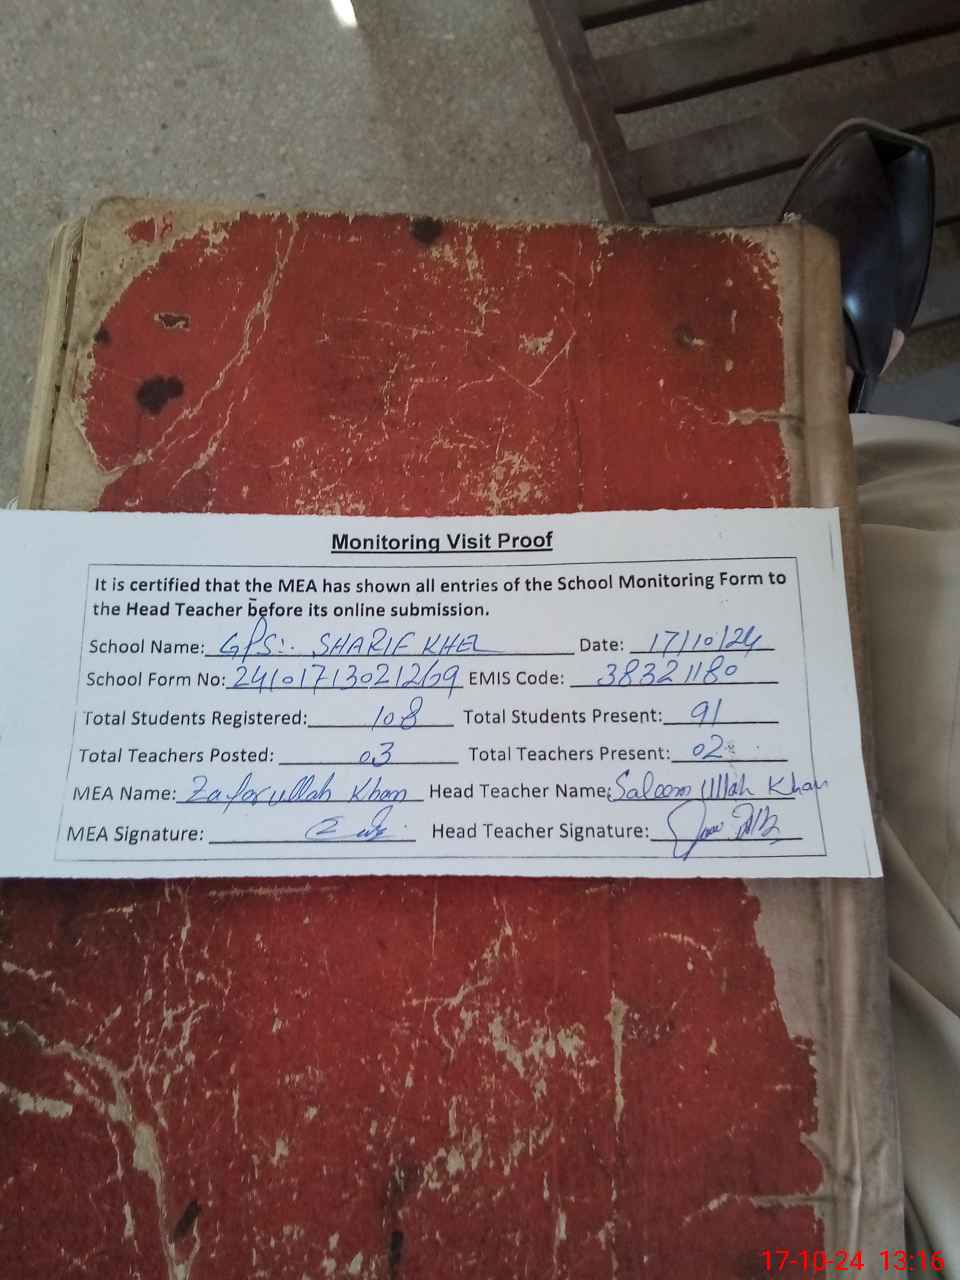 Monitoring Visit Proof
It is certified that the MEA has shown all entries of the School Monitoring Form to
the Head Teacher before its online submission.
School Name: GPS:. SHARIF KHEL Date: 17/10/24
School Form No: 24101713021269 EMIS Code: 38321180
Total Students Registered: 108 Total Students Present: 91
Total Teachers Posted: 03 Total Teachers Present: 02
MEA Name: Zafarullah Khan Head Teacher Name: Saleem Ullah Khan
MEA Signature: Head Teacher Signature:
17-10-24 13:16